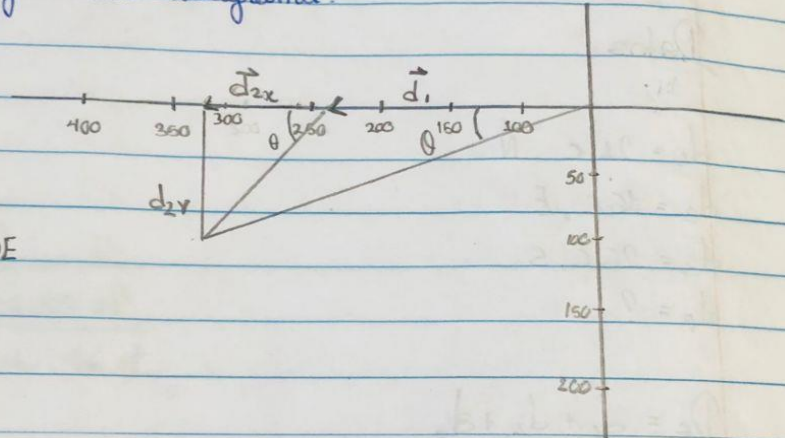 d₂ₓ d₁
400 350 300 250 200 150 100
θ θ
50
d₂ᵧ
100
E
150
200